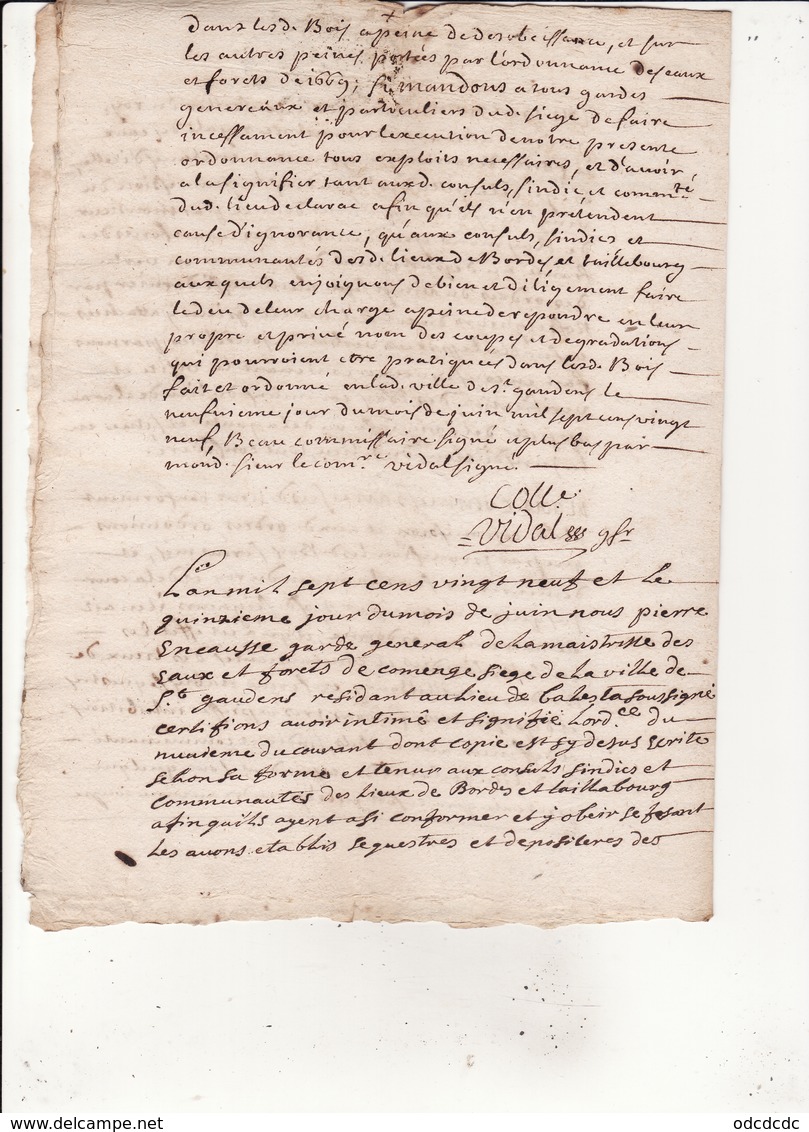 dans lesd. Bois a peine de desobeissance, et sur
les autres peines portées par l'ordonnance des eaux
et forets de 1669; si mandons a tous gardes
generaux et particuliers dud. siege de faire
incessament pour l'execution de notre presente
ordonnance tous exploits necessaires, et d'avoir
a la signifier tant auxd. consuls, sindic et comm.té
dud. lieu de clarac afin qu'ils n'en prétendent
cause d'ignorance, qu'aux consuls, sindics et
communautés desd. lieux de Bordes et taillebourg
auxquels enjoignons de bien et diligement faire
le deu de leur charge a peine de repondre en leur
propre et privé nom des coupes et degradations
qui pourroient etre pratiquées dans lesd. Bois
fait et ordonné en lad. ville de st. gaudens le
neufvieme jour du mois de juin mil sept cens vingt
neuf, Beau commissaire signé et plus bas par
mond. sieur le com.re vidal signé.
Coll.e
Vidal gfr
L'an mil sept cens vingt neuf et le
quinzieme jour du mois de juin nous pierre
Encausse garde general de la maistrisse des
Eaux et forets de comenge siege de la ville de
St. gaudens residant au lieu de soussigné
certifions avoir intimé et signifié Lord.ce du
nuvieme du courant dont copie est sy desus Ecrite
selhon sa forme et tenur aux consuls sindics et
communautés des Lieux de Bordes et taillabourg
afin quils ayent a si conformer et y obeir se fesant
Les avons etablis sequestres et depositeres des
odcdcdc